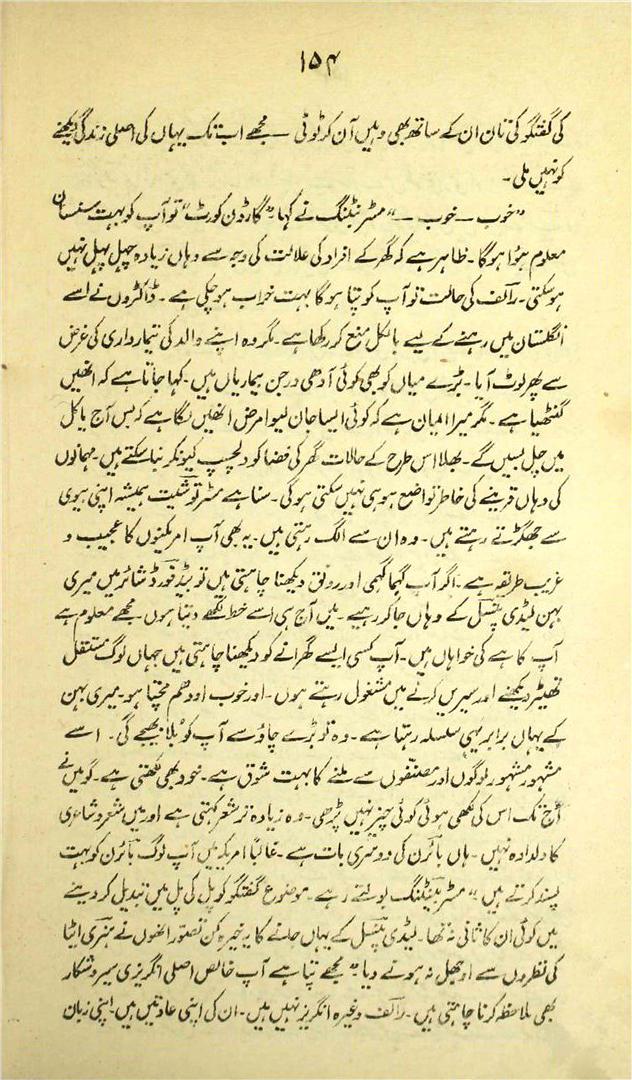 ۱۵۴
کی گفتگو کی تان ان کے ساتھ بھی وہیں آن کر ٹوٹی — مجھے اب تک یہاں کی اصلی زندگی دیکھنے
کو نہیں ملی۔
”خوب — خوب —“ مسٹر بنٹلنگ نے کہا ”گارڈن کورٹ“ تو آپ کو بہت سنسان
معلوم ہوا ہوگا۔ ظاہر ہے کہ گھر کے افراد کی علالت کی وجہ سے وہاں زیادہ چہل پہل نہیں
ہو سکتی۔ رالف کی حالت تو آپ کو پتا ہوگا بہت خراب ہو چکی ہے۔ ڈاکٹروں نے اسے
انگلستان میں رہنے کے لیے بالکل منع کر رکھا ہے۔ مگر وہ اپنے والد کی تیمار داری کی غرض
سے پھر لوٹ آیا۔ بڑے میاں کو بھی کوئی آدھی درجن بیماریاں ہیں۔ کہا جاتا ہے کہ انھیں
گنٹھیا ہے۔ مگر میرا ایمان ہے کہ کوئی ایسا جان لیوا مرض انھیں لگا ہے کہ بس آج یا کل
میں چل بسیں گے۔ بھلا اس طرح کے حالات گھر کی فضا کو دلچسپ کیونکر بنا سکتے ہیں۔ مہمانوں
کی وہاں قرینے کی خاطر تواضع ہو ہی نہیں سکتی ہوگی۔ سنا ہے مسٹر توشیٹ ہمیشہ اپنی بیوی
سے جھگڑتے رہتے ہیں۔ وہ ان سے الگ رہتی ہیں۔ یہ بھی آپ امریکنوں کا عجیب و
غریب طریقہ ہے۔ اگر آپ گہما گہمی اور رونق دیکھنا چاہتی ہیں تو بیڈفورڈ شائر میں میری
بہن لیڈی پنسل کے وہاں جا کر رہیے۔ میں آج ہی اسے خط لکھے دیتا ہوں۔ مجھے معلوم ہے
آپ کا ہے کی خواہاں ہیں۔ آپ کسی ایسے گھرانے کو دیکھنا چاہتی ہیں جہاں لوگ مستقل
تھیٹر دیکھنے اور سیریں کرنے میں مشغول رہتے ہوں۔ اور خوب اودھم مچتا ہو۔ میری بہن
کے یہاں برابر یہی سلسلہ رہتا ہے۔ وہ تو بڑے چاؤ سے آپ کو بلا بھیجے گی۔ اسے
مشہور مشہور لوگوں اور مصنفوں سے ملنے کا بہت شوق ہے۔ خود بھی لکھتی ہے۔ گو میں نے
آج تک اس کی لکھی ہوئی کوئی چیز نہیں پڑھی۔ وہ زیادہ تر شعر کہتی ہے اور میں شعر و شاعری
کا دلدادہ نہیں۔ ہاں بائرن کی دوسری بات ہے۔ غالباً امریکہ میں آپ لوگ بائرن کو بہت
پسند کرتے ہیں“ مسٹر بنٹلنگ بولتے رہے۔ موضوع گفتگو کو پل کی پل میں تبدیل کر دینے
میں کوئی ان کا ثانی نہ تھا۔ لیڈی پنسل کے یہاں جانے کا یہ خیرہ کن تصور انھوں نے ہنری ایٹا
کی نظروں سے اوجھل نہ ہونے دیا ”مجھے پتا ہے آپ خالص اصلی انگریزی سیر و شکار
بھی ملاحظہ کرنا چاہتی ہیں۔ رالف وغیرہ انگریز نہیں ہیں۔ ان کی اپنی عادتیں ہیں۔ اپنی زبان